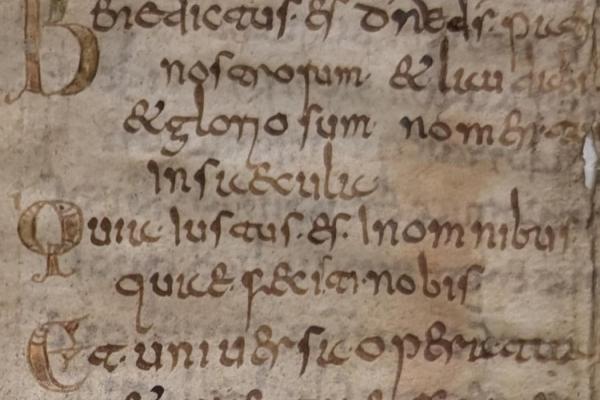 Benedictus es dne ds patr
nostrorum & laudabi
& gloriosum nomen tu
In saecula
Quia Iustus es In omnibus
quae fecisti nobis
Et universa opera tua